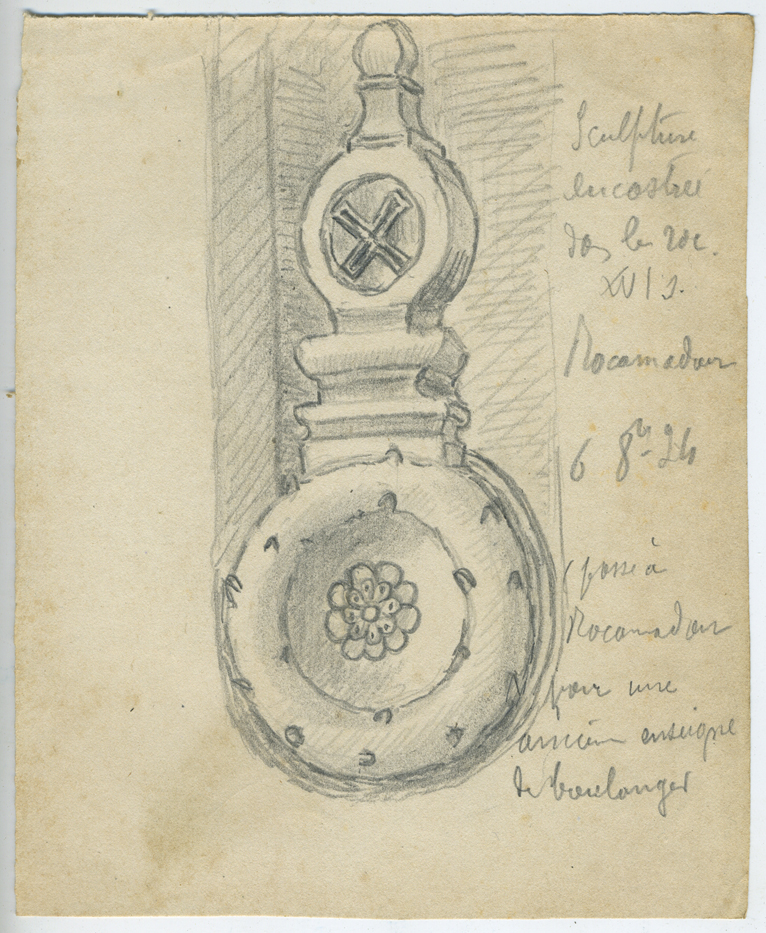 Sculpture
encastrée
dans le roc.
XVI s.
Rocamadour
6 8bre 24
(passe à
Rocamadour
pour une
ancienne enseigne
de boulanger